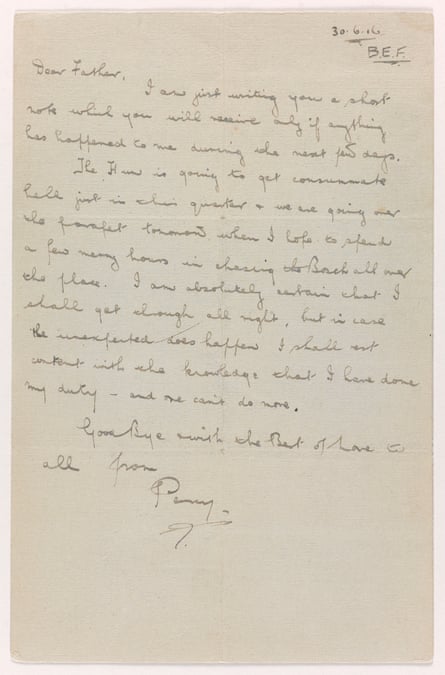 30.6.16
B.E.F.
Dear Father,
I am just writing you a short
note which you will receive only if anything
has happened to me during the next few days.
The Hun is going to get consummate
hell just in this quarter & we are going over
the parapet tomorrow when I hope to spend
a few merry hours in chasing the Bosch all over
the place. I am absolutely certain that I
shall get through all right, but in case
the unexpected does happen I shall rest
content with the knowledge that I have done
my duty – and one can't do more.
Good Bye & with the Best of Love to
all from
Percy